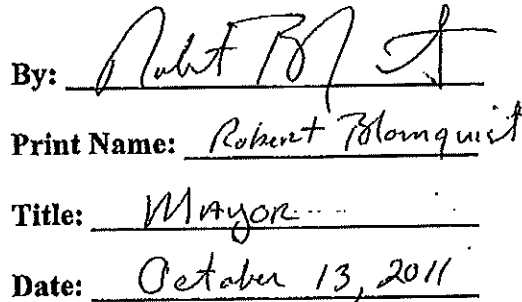 By: Robert Bl
Print Name: Robert Blomquist
Title: Mayor
Date: October 13, 2011